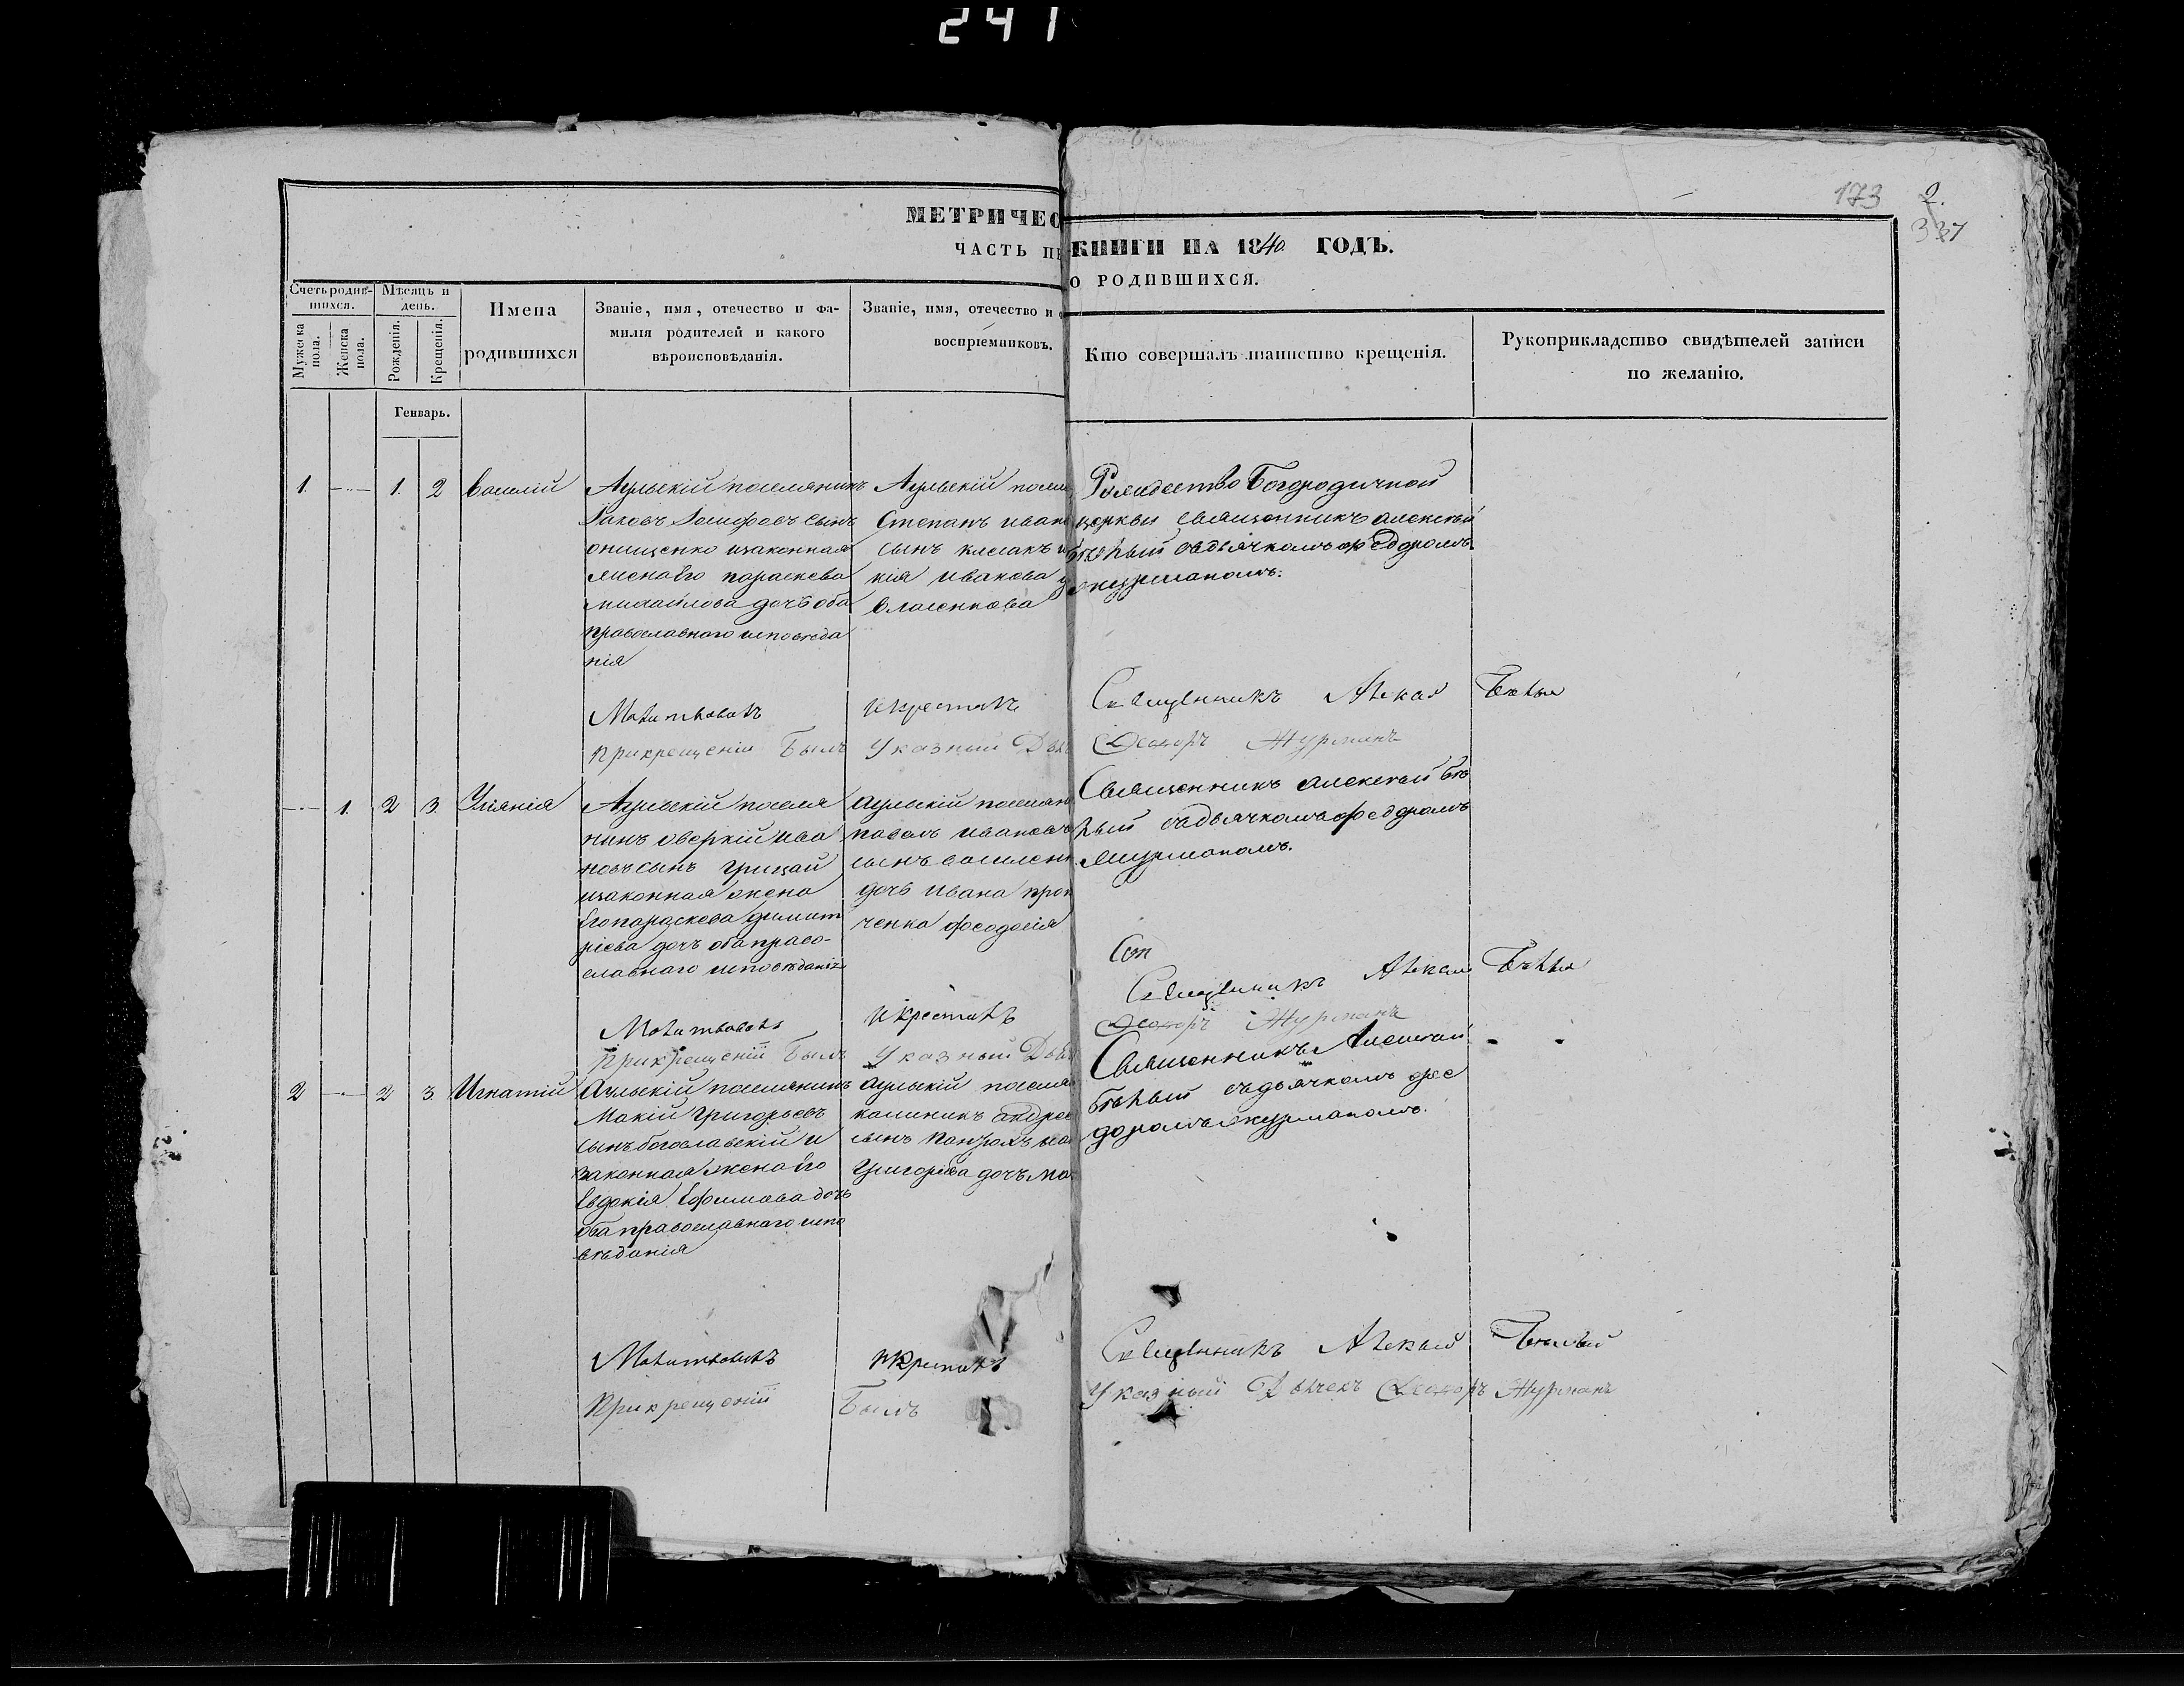 241
173 2.
337
МЕТРИЧЕС КНИГИ НА 1840. ГОДЪ.
ЧАСТЬ ПЕ О РОДИВШИХСЯ.
Счетъ родив-
шихся.
Мужеска
пола.
Женска
пола.
Мѣсяцъ и
день.
Рожденія.
Крещенія.
Имена
родившихся
Званіе, имя, отечество и фа-
милія родителей и какого
вѣроисповѣданія.
Званіе, имя, отечество и
воспріемниковъ.
Кто совершалъ таинство крещенія.
Рукоприкладство свидѣтелей записи
по желанію.
Генварь.
1. — 1. 2 Василій
Аульскій поселянинъ
Іаковъ Іосифовъ сынъ
онищенко изаконная
жена его параскева
михайлова дочь оба
православного исповеда
нія
Аульскій посел
Степанъ иван
сынъ
кія иванова
власенкова
Рождество Богородичной
церкви священникъ алексѣй
бѣлый съдьячкомъ федоромъ
журманомъ.
Молитвовалъ икрестилъ Священникъ Бѣлый
Прикрещеніи Былъ Указный Дья Феодоръ Журманъ
— 1. 2 3. Уліянія
Аульскій поселя
нинъ оверкій ива
новъ сынъ грицай
изаконная жена
Его параскева димит
ріева дочь оба право-
славного исповѣданія
аульскій поселян
павелъ ивановъ
сынъ василен
дочь ивана про
ченка феодосія
Священникъ алексѣй бѣ
лый съдьячкомъ федоромъ
журманомъ.
Молитвовалъ икрестилъ Священникъ Бѣлый
Прикрещеніи Былъ Указный Дья Феодоръ Журманъ
2 — 2 3 Игнатій
Аульскій поселянинъ
Мокій Григорьевъ
сынъ богославскій и
законная жена его
Евдокія Ефимова дочь
оба православного испо
вѣданія
аульскій поселя
калиникъ андрее
сынъ
Григорьева дочь
Священникъ Алексѣй
бѣлый съдьячкомъ фео
доромъ журманомъ.
Молитвовалъ икрестилъ Священникъ Алексѣй Бѣлый
Прикрещеніи Былъ Указный Дьячекъ Феодоръ Журманъ